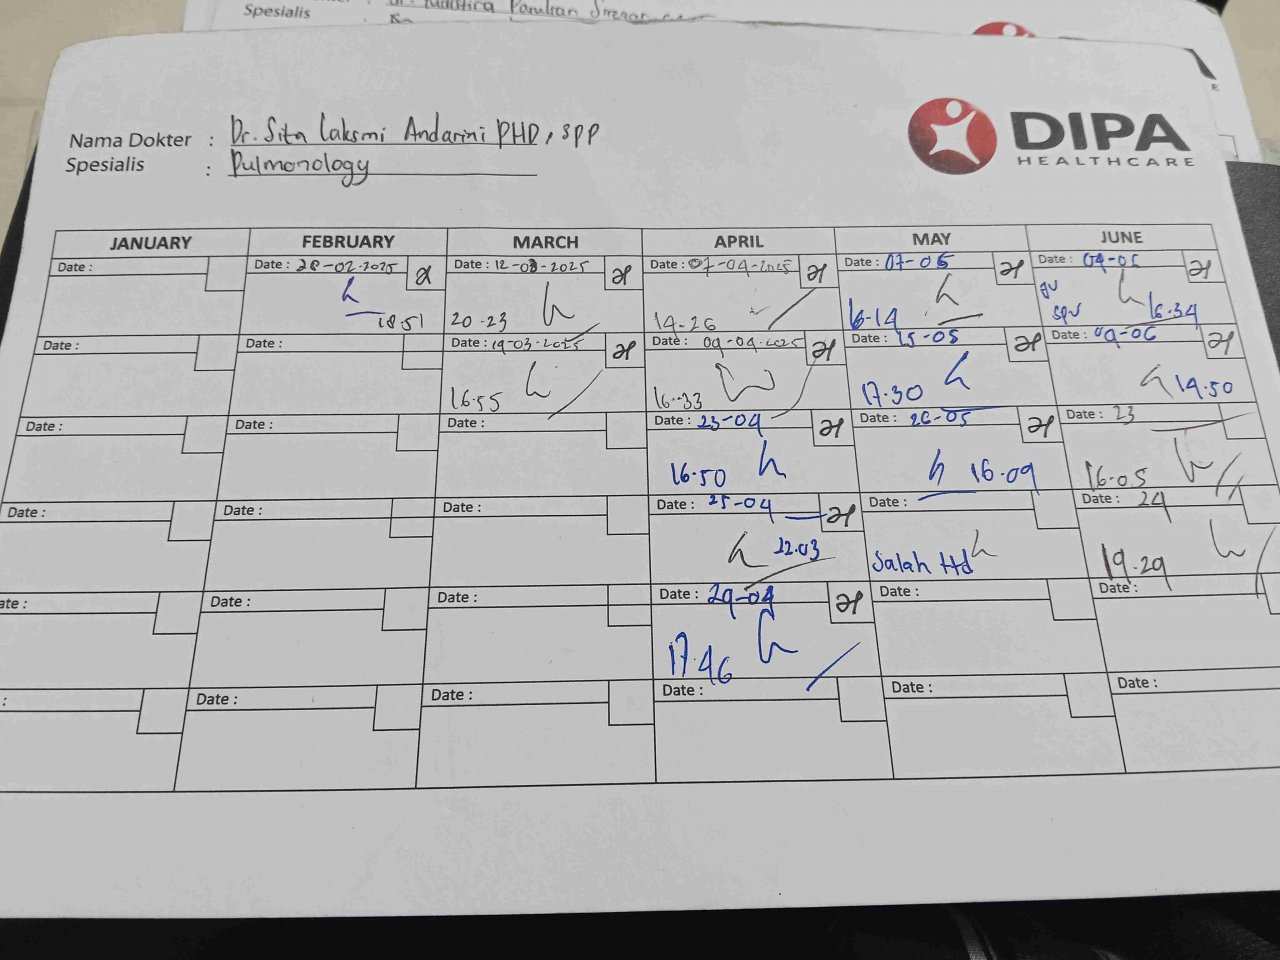 Spesialis
Nama Dokter : Dr. Sita Laksmi Andarini PHD, SPP
Spesialis : Pulmonology
DIPA
HEALTHCARE
JANUARY FEBRUARY MARCH APRIL MAY JUNE
Date : Date : 28-02-2025 Date : 12-03-2025 Date : 07-04-2025 Date : 07-05 Date : 04-06
18.51 20.23 14-26 16-14 spv 16.34
Date : Date : Date : 19-03-2025 Date : 09-04-2025 Date : 15-05 Date : 09-06
16.55 16-33 17.30 19.50
Date : Date : Date : Date : 23-04 Date : 26-05 Date : 23
16.50 16.09 16.05
Date : Date : Date : Date : 25-04 Date : Date : 24
22.03 Salah Ttd 19.29
ate : Date : Date : Date : 29-04 Date : Date :
17.46
: Date : Date : Date : Date : Date :